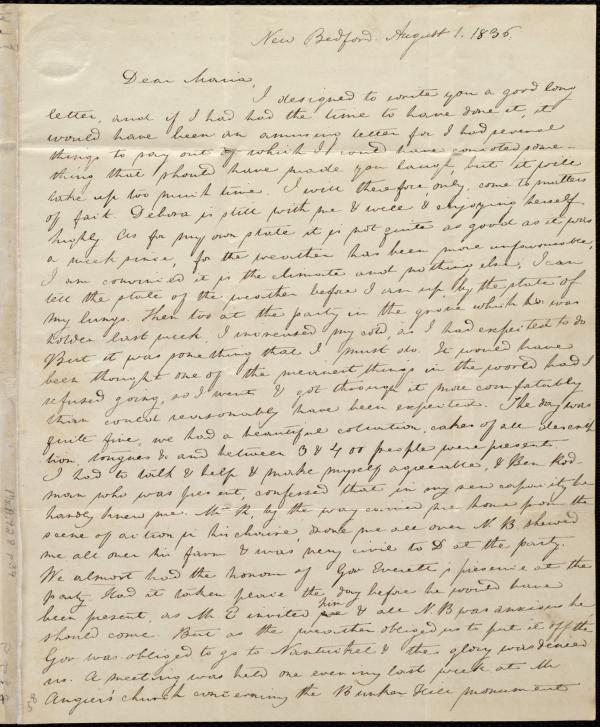 New Bedford. August 1. 1836.
Dear Maria,
I designed to write you a good long
letter, and if I had had the time to have done it, it
would have been an amusing letter for I had several
things to say out of which I could have concocted some-
thing that should have made you laugh, but it will
take up too much time. I will therefore, only, come to matters
of fact. Debora is still with me & well & enjoying herself
highly As for my own state it is not quite as good as it was
a week since, for the weather has been more unfavourable,
I am convinced it is the climate and nothing else, I can
tell the state of the weather before I am up, by the state of
my lungs. Then too at the party in the grove which was
holden last week, I increased my cold, as I had expected to do
But it was something that I must do. It would have
been thought one of the meanest things in the world had I
refused going, so I went & got through it more comfortably
than could reasonably have been expected. The day was
quite fine, we had a beautiful collation, cakes of all descrip
tion, tongues &c and between 3 & 400 people were present.
I had to talk & help & make myself agreeable, & Ben Rod-
man who was present, confessed that in my new capacity he
hardly knew me. Mr R, by the way carried me home from the
scene of action in his chaise, drove me all over N. B shewed
me all over his farm & was very civil to D at the party.
We almost had the honour of Gov Everett's presence at the
party. Had it taken place the day before he would have
been present, as Mr E invited him & all N. B was anxious he
should come. But as the weather obliged us to put it off the
Gov was obliged to go to Nantucket & the glory was denied
us. A meeting was held one evening last week at Mr
Angier's church concerning the Bunker Hill monument